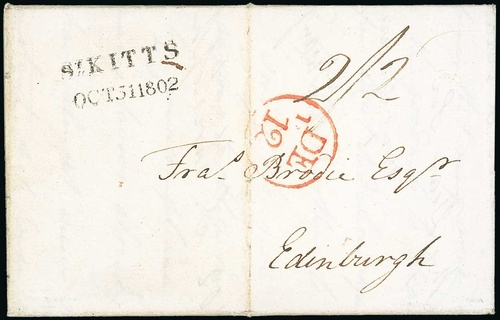 St KITTS
OCT 31 1802
2/2
DE
12
Fras. Brodie Esqr
Edinburgh